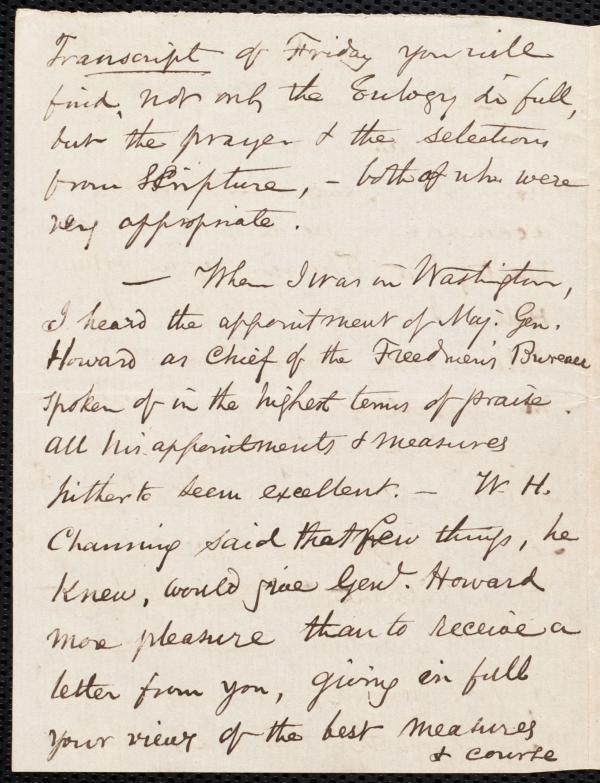 Transcript of Friday you will
find, not only the Eulogy in full,
but the prayer & the selections
from Scripture, – both of wh. were
very appropriate.
— When I was in Washington,
I heard the appointment of Maj. Gen.
Howard as Chief of the Freedmen's Bureau
spoken of in the highest terms of praise.
All his appointments & measures
hitherto seem excellent. – W. H.
Channing said that few things, he
knew, would give Genl. Howard
more pleasure than to receive a
letter from you, giving in full
your views of the best measures
& course